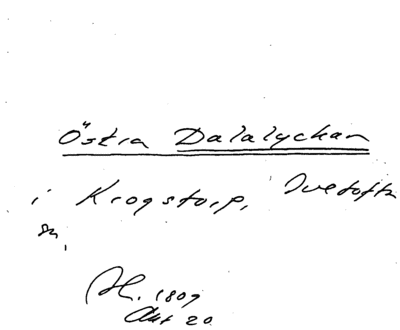 Östra Dalalyckan
i Krogstorp, Ivetofta
sn,
AL. 1809
Akt 20